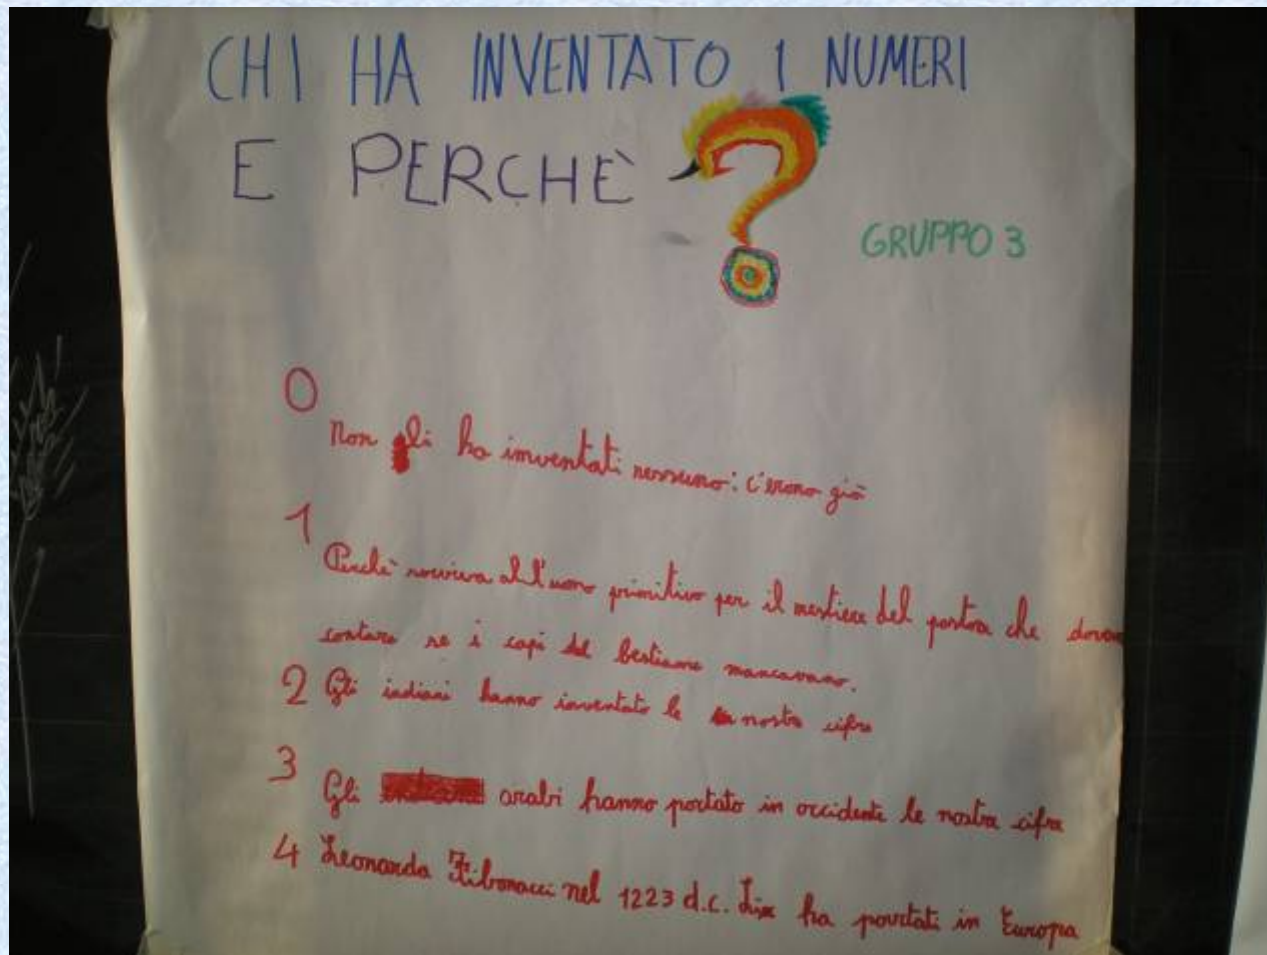 CHI HA INVENTATO I NUMERI
E PERCHÈ ?
GRUPPO 3
0
Non gli ha inventati nessuno: c'erano già
1
Perchè serviva all'uomo primitivo per il mestiere del pastore che
contare se i capi del bestiame mancavano.
2 Gli indiani hanno inventato le nostre cifre
3
Gli arabi hanno portato in occidente le nostre cifre
4 Leonardo Fibonacci nel 1223 d.c. ha portati in Europa